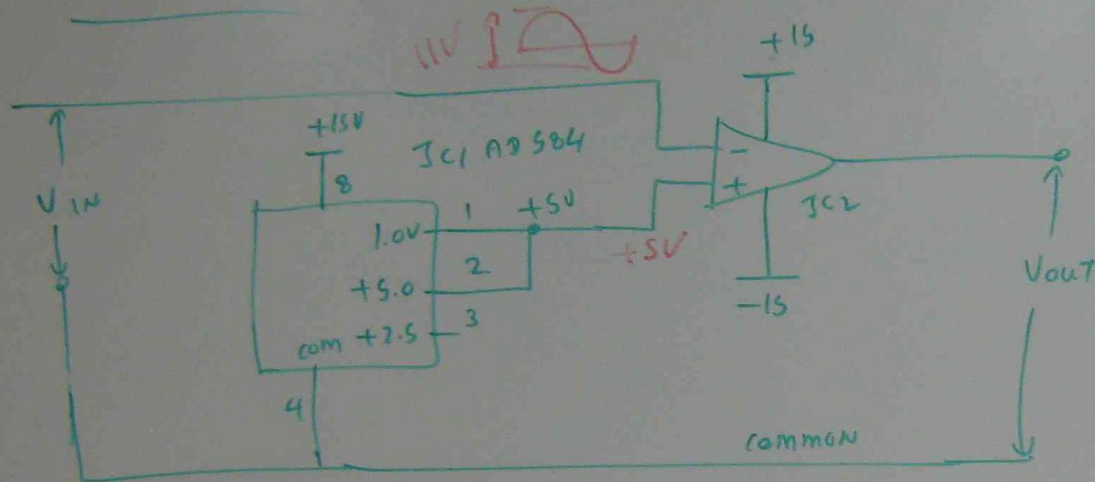 11V
+15
+15V
IC1 AD584
8
VIN
1.0V
1
+5V
-
+
IC2
2
+5V
+5.0
3
com +2.5
-15
VOUT
4
COMMON